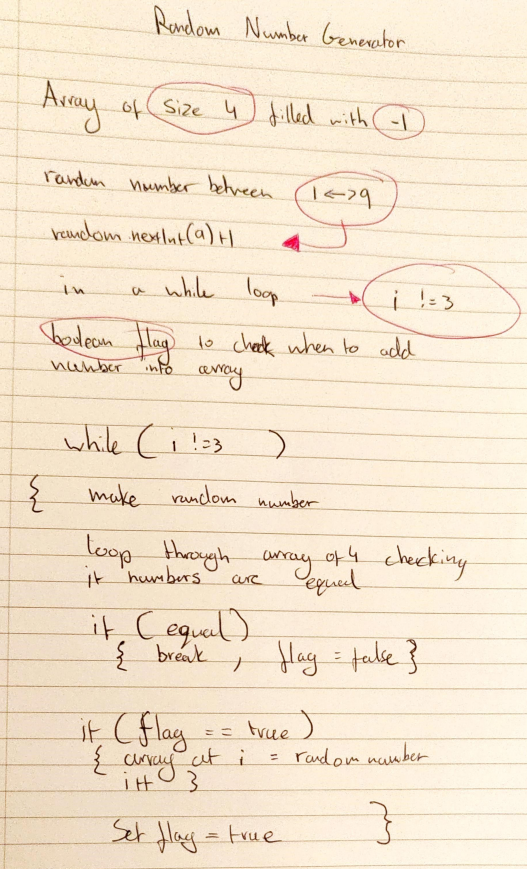 Random Number Generator
Array of size 4 filled with -1
random number between 1<->9
random.nextInt(9)+1
in a while loop → i !=3
boolean flag to check when to add
number into array
while ( i !=3 )
{ make random number
loop through array of 4 checking
if numbers are equal
if (equal)
{ break , flag = false }
if (flag == true)
{ array at i = random number
i++ }
Set flag = true }